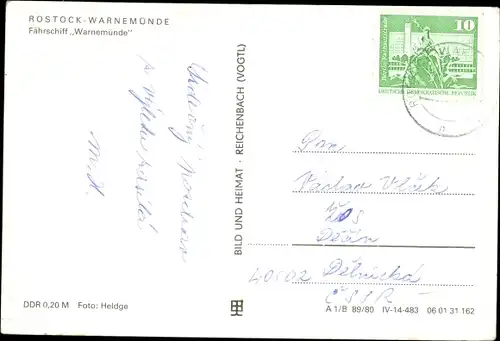 ROSTOCK-WARNEMÜNDE
Fährschiff „Warnemünde"
Srdečný pozdrav
z výletu posílá
M. H.
BILD UND HEIMAT · REICHENBACH (VOGTL)
10
DEUTSCHE DEMOKRATISCHE REPUBLIK
Pan
Václav Vlček
Děčín
40502 Dělnická
ČSSR
DDR 0,20 M Foto: Heldge
A 1/B 89/80 IV-14-483 06 01 31 162